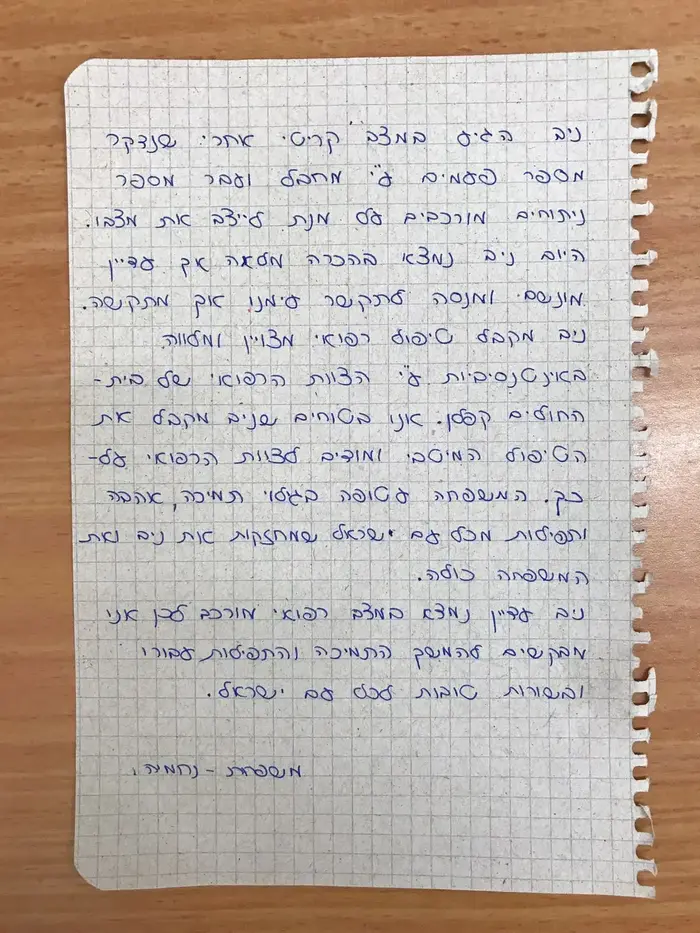 ניב הגיע במצב קריטי אחרי שנדקר
מספר פעמים ע"י מחבל ועבר מספר
ניתוחים מורכבים על מנת לייצב את מצבו.
היום ניב נמצא בהכרה מלאה אך עדיין
מונשם ומנסה לתקשר עימנו אך מתקשה.
ניב מקבל טיפול רפואי מצויין ומלווה
באינטנסיביות ע"י הצוות הרפואי של בית-
החולים קפלן. אנו בטוחים שניב מקבל את
הטיפול המיטבי ומודים לצוות הרפואי על-
כך. המשפחה עטופה בגלוי תמיכה, אהבה
ותפילות מכל עם ישראל שמחזקות את ניב ואת
המשפחה כולה.
ניב עדיין נמצא במצב רפואי מורכב לכן אני
מבקשים להמשך התמיכה והתפילות עבורו
ובשורות טובות לכל עם ישראל.
משפחת - נחמיה.